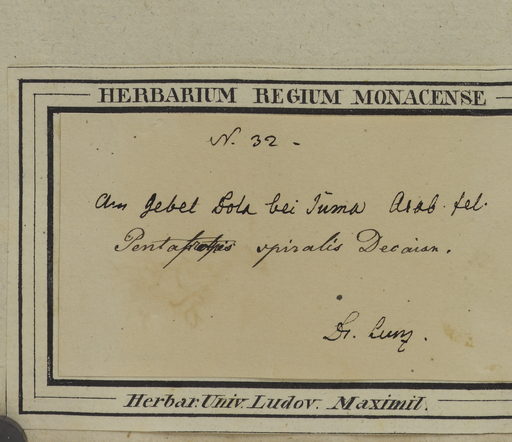 HERBARIUM REGIUM MONACENSE
N. 32 -
Am Gebel Dola bei Tuma Arab. fel.
spiralis Decaisn.
Dr. Lunz.
Herbar. Univ. Ludov. Maximil.